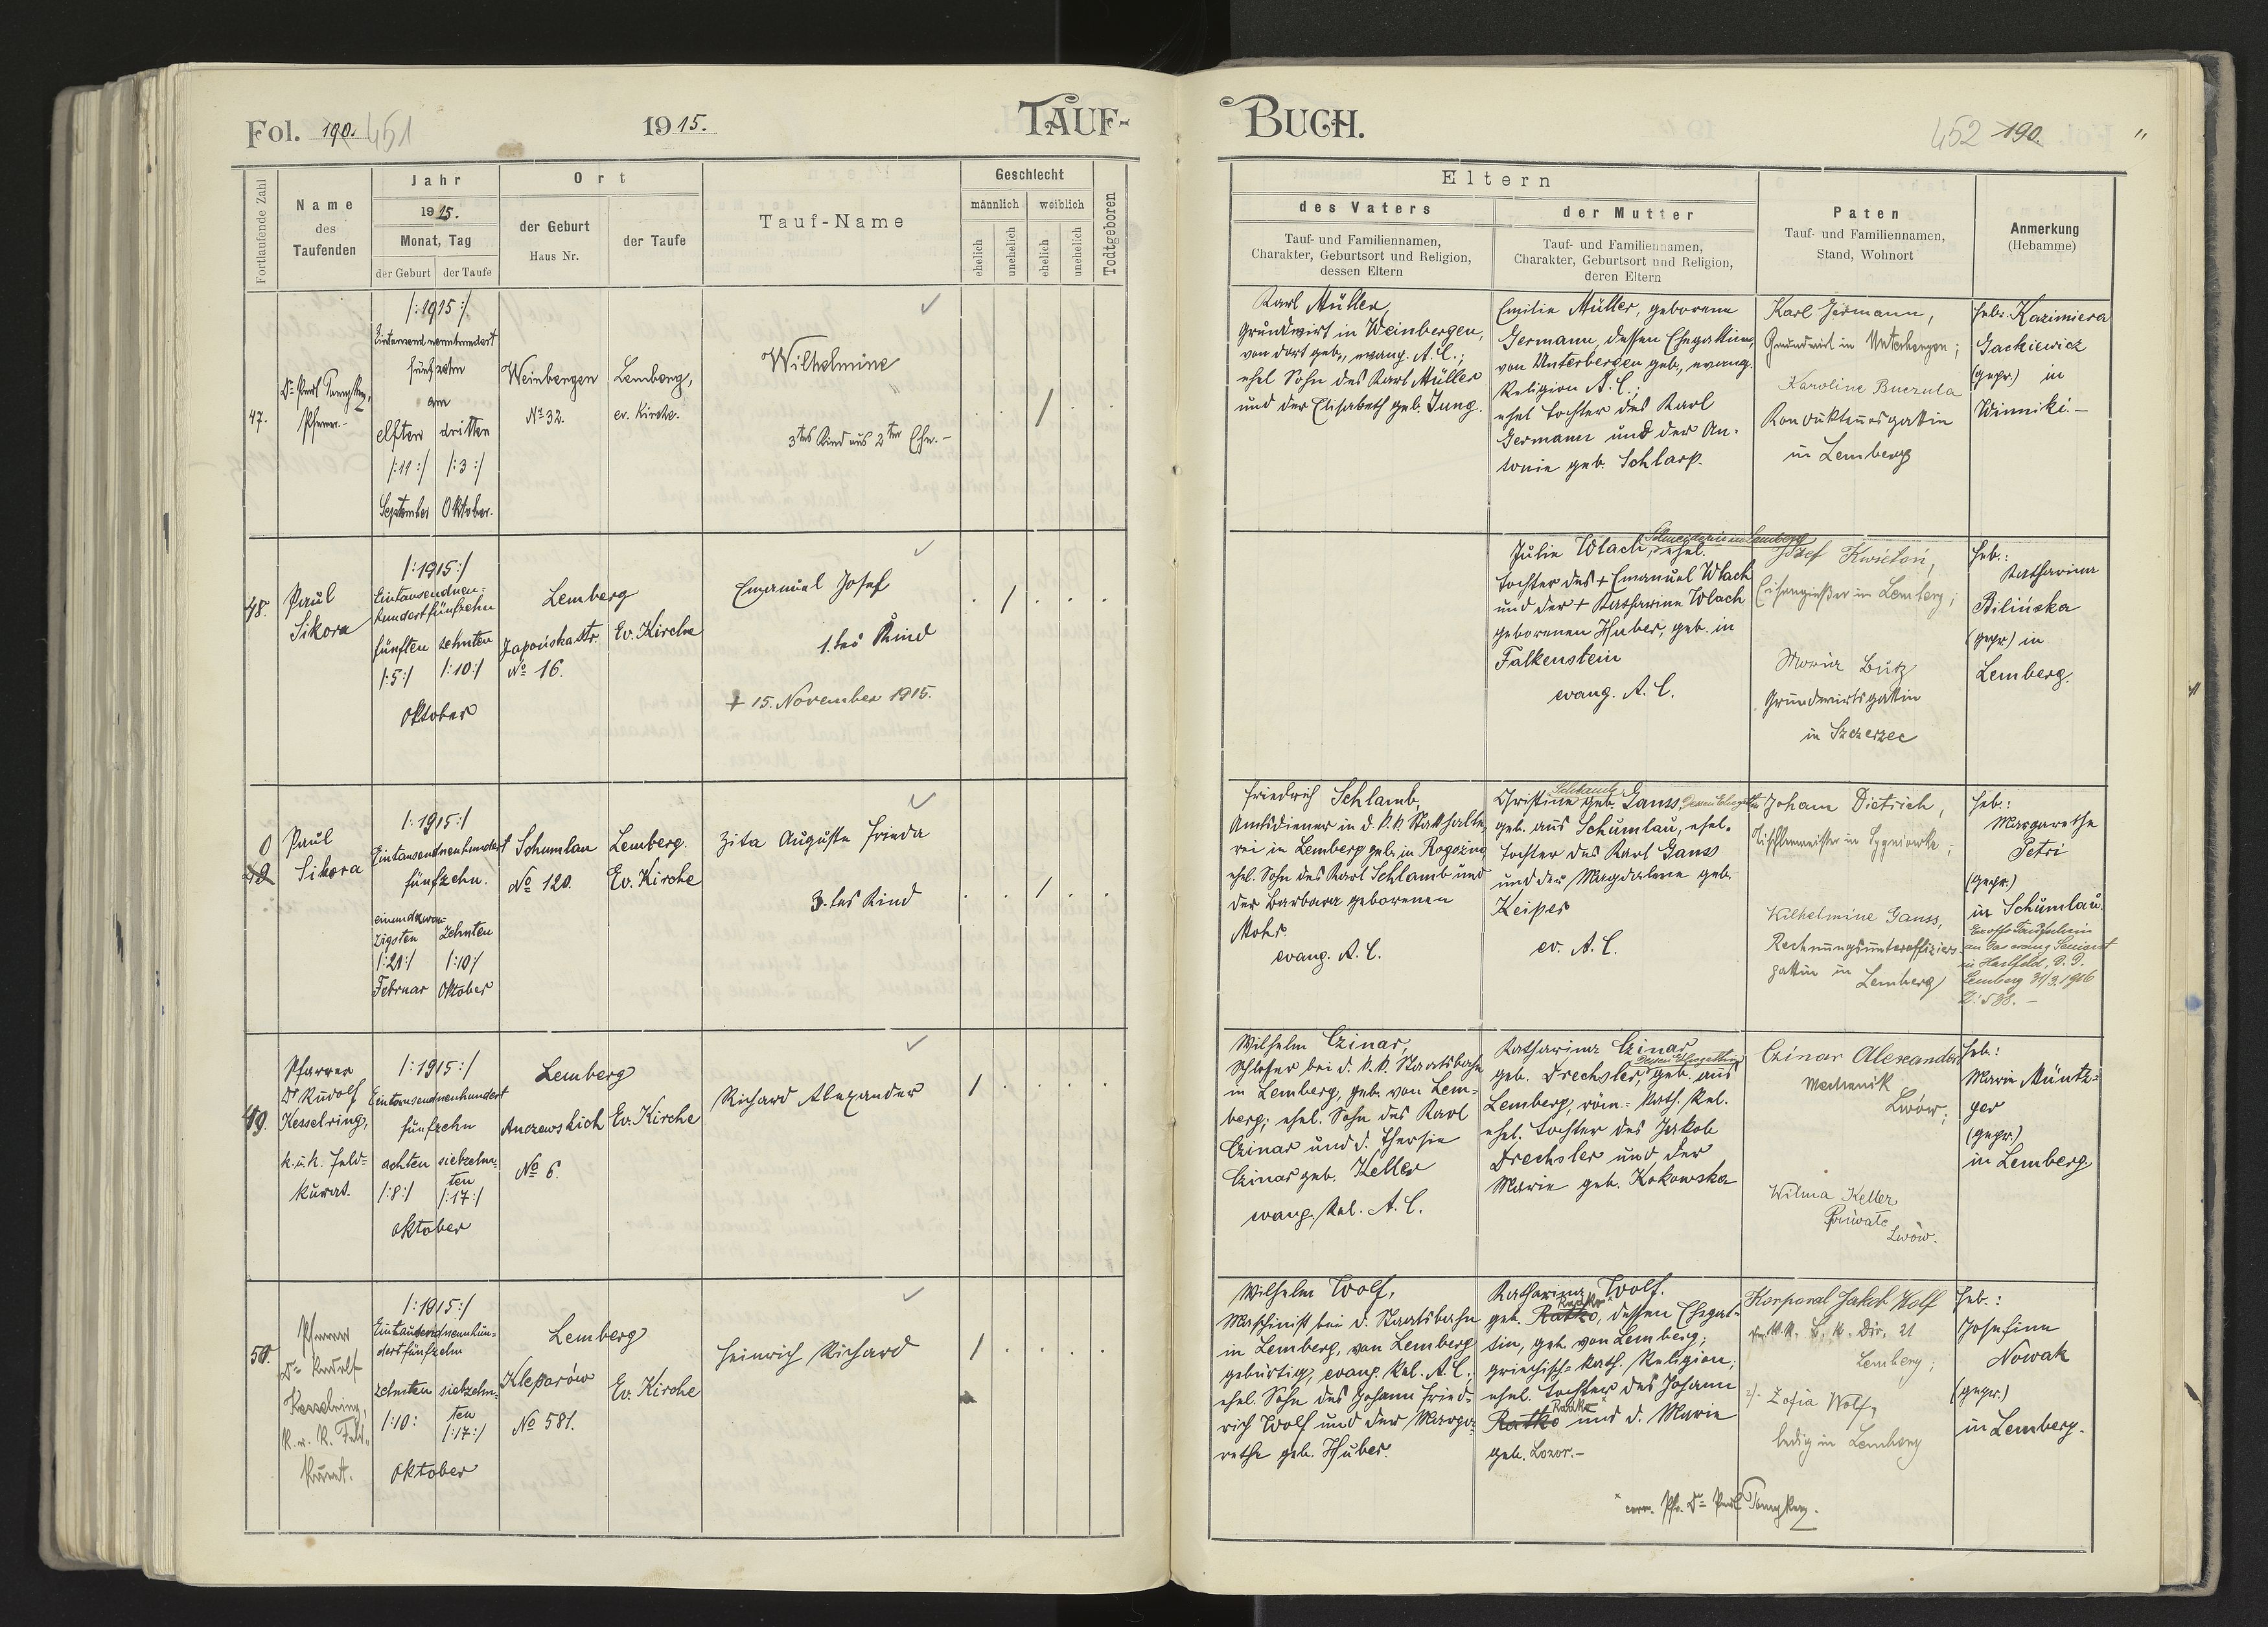 Fol. 190. 451
1915.
TAUF-
Fortlaufende Zahl
Name
des
Taufenden
Jahr
1915.
Monat, Tag
der Geburt
der Taufe
Ort
der Geburt
Haus Nr.
der Taufe
Tauf-Name
Geschlecht
männlich
weiblich
ehelich
unehelich
ehelich
unehelich
Todtgeboren
47.
Pfarrer.-
/:1915:/
Eintausend neunhundert
fünfzehn
am
elften
dritten
/:11:/
/:3:/
September
Oktober.
Weinbergen
No 32.
Lemberg,
ev. Kirche.
Wilhelmine
3tes Kind aus 2ter Ehe.-
48.
Paul
Sikora
/:1915:/
Eintausendneun-
hundertfünfzehn
fünften
zehnten
/:5:/
/:10:/
Oktober
Lemberg
Japońskastr.
No 16.
Ev. Kirche
Emanuel Josef
1.tes Kind
+ 15. November 1915.
0
49
Paul
Sikora
/:1915:/
Eintausendneunhundert
fünfzehn.
einundzwan-
zigsten
Zehnten
/:21:/
/:10:/
Februar
Oktober
Schumlau
No 120.
Lemberg.
Ev. Kirche
Zita Auguste Frieda
3.tes Kind
49.
Pfarrer
Dr Rudolf
Kesselring,
k.u.k. Feld-
kurat.
/:1915:/
Eintausendneunhundert
fünfzehn
achten
siebzehn-
ten
/:8:/
/:17:/
Oktober
Lemberg
Anczewskich
No 6.
Ev. Kirche
Richard Alexander
50.
Pfarrer
Dr Rudolf
Kesselring,
k. u. k. Feld-
kurat.
/:1915:/
Eintausendneunhun-
dertfünfzehn
zehnten
siebzehn-
ten
/:10:
/:17:/
Oktober
Lemberg
Kleparów
No 581.
Ev. Kirche
Heinrich Richard
BUCH.
452 190.
Eltern
des Vaters
Tauf- und Familiennamen,
Charakter, Geburtsort und Religion,
dessen Eltern
der Mutter
Tauf- und Familiennamen,
Charakter, Geburtsort und Religion,
deren Eltern
Paten
Tauf- und Familiennamen,
Stand, Wohnort
Anmerkung
(Hebamme)
Karl Müller,
Grundwirt in Weinbergen,
von dort geb., evang. A.C.;
ehel Sohn des Karl Müller
und der Elisabeth geb. Jung.
Emilie Müller, geborene
Germann, dessen Ehegattin,
von Unterbergen geb., evang.
Religion A. C.;
ehel Tochter des Karl
Germann und der An-
tonie geb. Schlarp.
Karl Germann,
Grundwirt in Unterbergen;
Karoline Buczula
Kondukteursgattin
in Lemberg
Heb. Kazimiera
Gackiewicz
(gepr.) in
Winniki.-
Julie Wlach, ehel.
Tochter des + Emanuel Wlach
und der + Katharine Wlach
geborenen Huber, geb. in
Falkenstein
evang. A. C.
Josef Kwietoń,
Eisengießer in Lemberg;
Maria Butz
Grundwirtsgattin
in Szczerzec
Heb.:
Katharina
Bilińska
(gepr.) in
Lemberg.
Friedrich Schlamb,
Amtsdiener in d. k. k. Statthalte-
rei in Lemberg geb. in Rogozina
ehel. Sohn des Karl Schlamb und
der Barbara geborenen
Mohr.
evang. A. C.
Schlamb
Christine geb. Gauss, dessen Ehegattin
geb. aus Schumlau, ehel.
Tochter des Karl Gauss
und der Magdalene geb.
Keiper
ev. A. C.
Johann Dietrich,
Tischlermeister in Sygniowka;
Wilhelmine Gauss,
Rechnungsunteroffiziers
gattin in
Lemberg
Heb.:
Margarethe
Petri
(gepr.)
in Schumlau.
Exoffo Taufschein
an das evang. Seniorat
in Hartfeld, d. d.
Lemberg 31/3. 1916
Wilhelm Czinar,
Schlosser bei d. k. k. Staatsbahn
in Lemberg, geb. von Lem-
berg; ehel. Sohn des Karl
Czinar und d. Theresie
Czinar geb. Keller
evang. Rel. A. C.
Katharina Czinar
dessen Ehegattin
geb. Drechsler, geb. aus
Lemberg, röm.-kath. Rel.
ehel. Tochter des Jakob
Drechsler und der
Marie geb. Kokowska
Czinar Alexander
Mechanik
Lwów;
Wilma Keller
Private
Lwów.
Heb.:
Marie Müntzi-
ger
(gepr.)
in Lemberg
Wilhelm Wolf,
Maschinist bei d. Staatsbahn
in Lemberg, von Lemberg
gebürtig, evang. Rel. A.C.,
ehel. Sohn des Johann Fried-
rich Wolf und der Marga-
rethe geb. Huber.
Katharina Wolf.
geb. Ratko, dessen Ehegat-
tin, geb. von Lemberg;
griechisch-kath. Religion;
ehel. Tochter des Johann
Ratko und d. Marie
geb. Lozor.-
Korporal Jakob Wolf
Lemberg;
2). Zofia Wolf,
ledig in Lemberg
Heb.:
Josefine
Nowak
(gepr.)
in Lemberg.